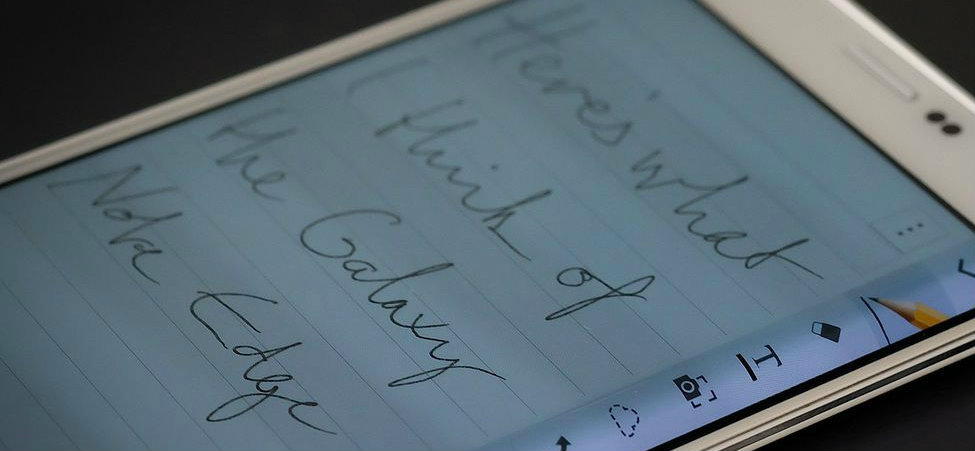 Here's what
I think of
the Galaxy
Note Edge
T